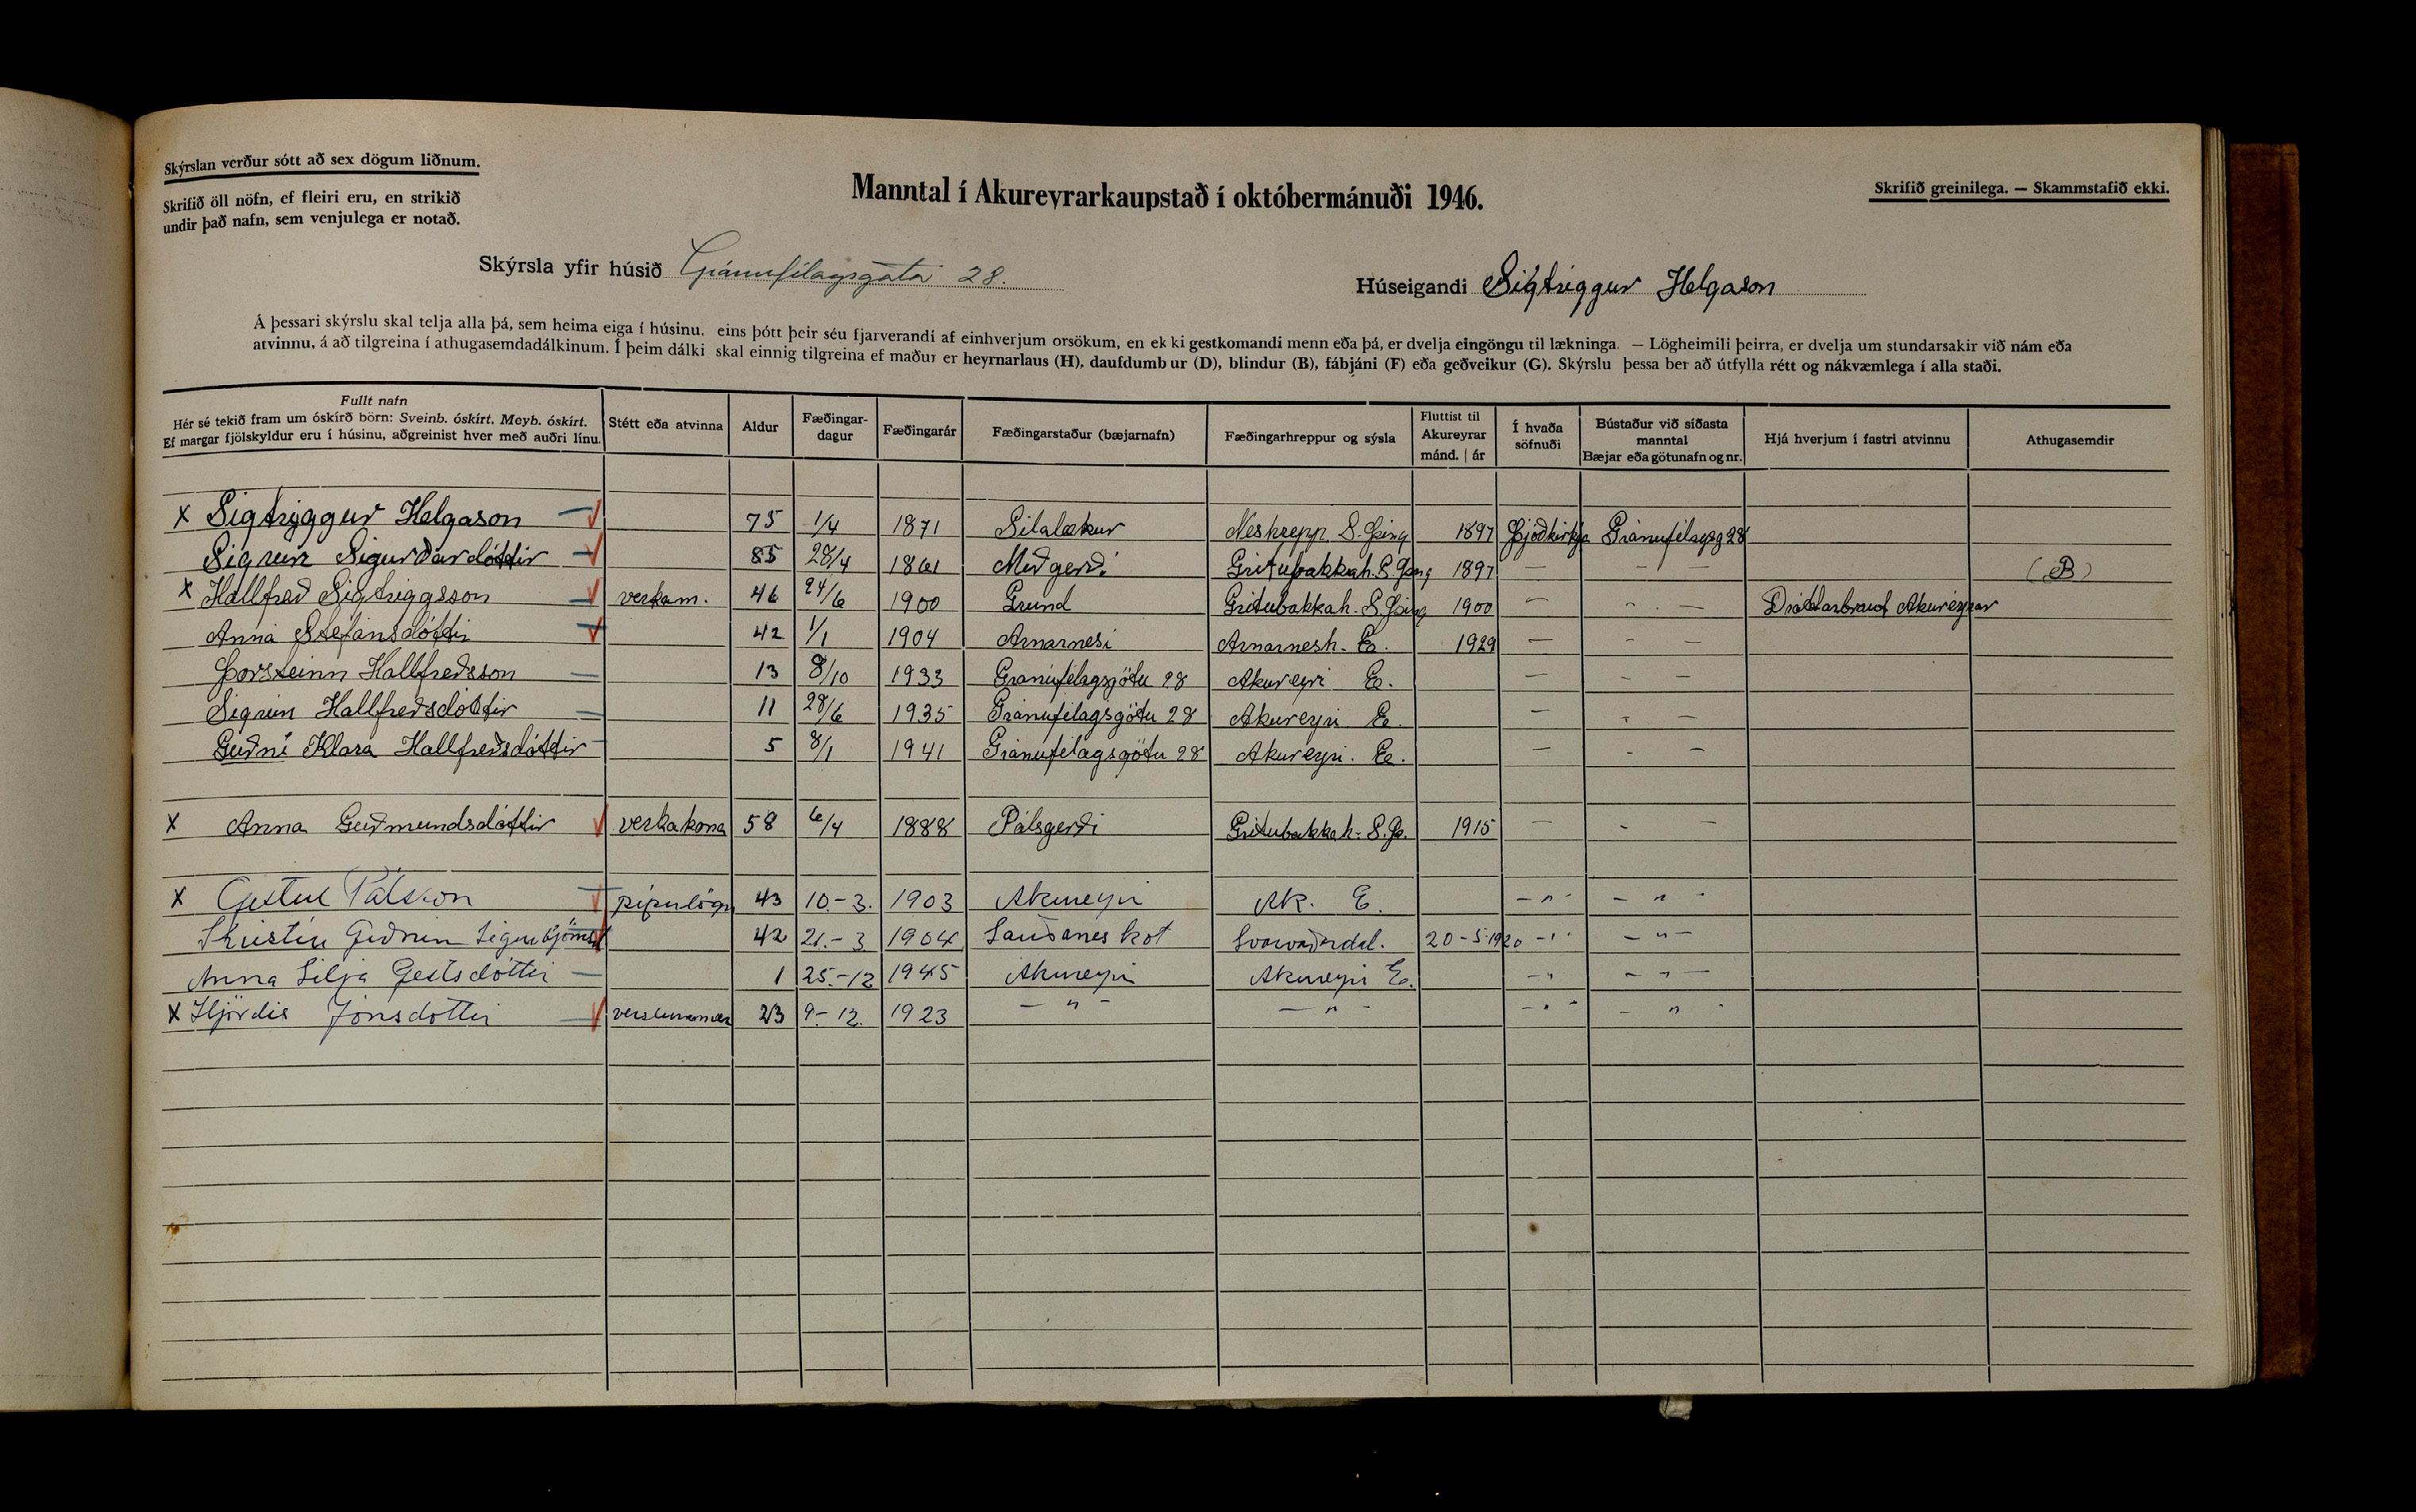 Skýrslan verður sótt að sex dögum liðnum.
Skrifið öll nöfn, ef fleiri eru, en strikið
undir það nafn, sem venjulega er notað.
Manntal í Akureyrarkaupstað í októbermánuði 1946.
Skrifið greinilega. — Skammstafið ekki.
Skýrsla yfir húsið Gránufélagsgata 28.
Húseigandi Sigtriggur Helgason
Á þessari skýrslu skal telja alla þá, sem heima eiga í húsinu, eins þótt þeir séu fjarverandi af einhverjum orsökum, en ekki gestkomandi menn eða þá, er dvelja eingöngu til lækninga. — Lögheimili þeirra, er dvelja um stundarsakir við nám eða
atvinnu, á að tilgreina í athugasemdadálkinum. Í þeim dálki skal einnig tilgreina ef maður er heyrnarlaus (H), daufdumbur (D), blindur (B), fábjáni (F) eða geðveikur (G). Skýrslu þessa ber að útfylla rétt og nákvæmlega í alla staði.
Fullt nafn
Hér sé tekið fram um óskírð börn: Sveinb. óskírt. Meyb. óskírt.
Ef margar fjölskyldur eru í húsinu, aðgreinist hver með auðri línu.
Stétt eða atvinna
Aldur
Fæðingar-
dagur
Fæðingarár
Fæðingarstaður (bæjarnafn)
Fæðingarhreppur og sýsla
Fluttist til
Akureyrar
mánd. | ár
Í hvaða
söfnuði
Bústaður við síðasta
manntal
Bæjar eða götunafn og nr.
Hjá hverjum í fastri atvinnu
Athugasemdir
X Sigtryggur Helgason 75 1/4 1871 Sílalækur Neshrepp S. Þing 1897 Þjóðkirkja Gránufélagsg 28
Sigrún Sigurðardóttir 85 28/4 1861 Miðgerði Gritubakkah. S. Þing 1897 — - — (B)
X Hallfreð Sigtriggsson verkam. 46 24/6 1900 Grund Gritubakkah. S. Þing 1900 — - — Dráttarbraut Akureyrar
Anna Stefánsdóttir 42 1/1 1904 Arnarnesi Arnarnesh. E. 1929 — - —
Þorsteinn Hallfreðsson 13 8/10 1933 Gránufélagsgötu 28 Akureyri E. — - —
Sigrún Hallfreðsdóttir 11 28/6 1935 Gránufélagsgötu 28 Akureyri E. — - —
Guðní Klara Hallfreðsdóttir 5 8/1 1941 Gránufélagsgötu 28 Akureyri. E. — - —
X Anna Guðmundsdóttir verkakona 58 6/4 1888 Pálsgerði Gritubakkah. S. Þ. 1915 — - —
X Gestur Pálsson pípulögn 43 10.-3. 1903 Akureyri Ak. E. - " - - " -
Kristín Guðrún Sigurbjörnsd 42 21.-3 1904 Sauðaneskot Svarvaðardal. 20-5-1920 - " - " -
Anna Lilja Gestsdóttir 1 25.-12 1945 Akureyri Akureyri E. - " - " -
X Hjördís Jónsdóttir 23 9.-12. 1923 - " - - " - - " - - "